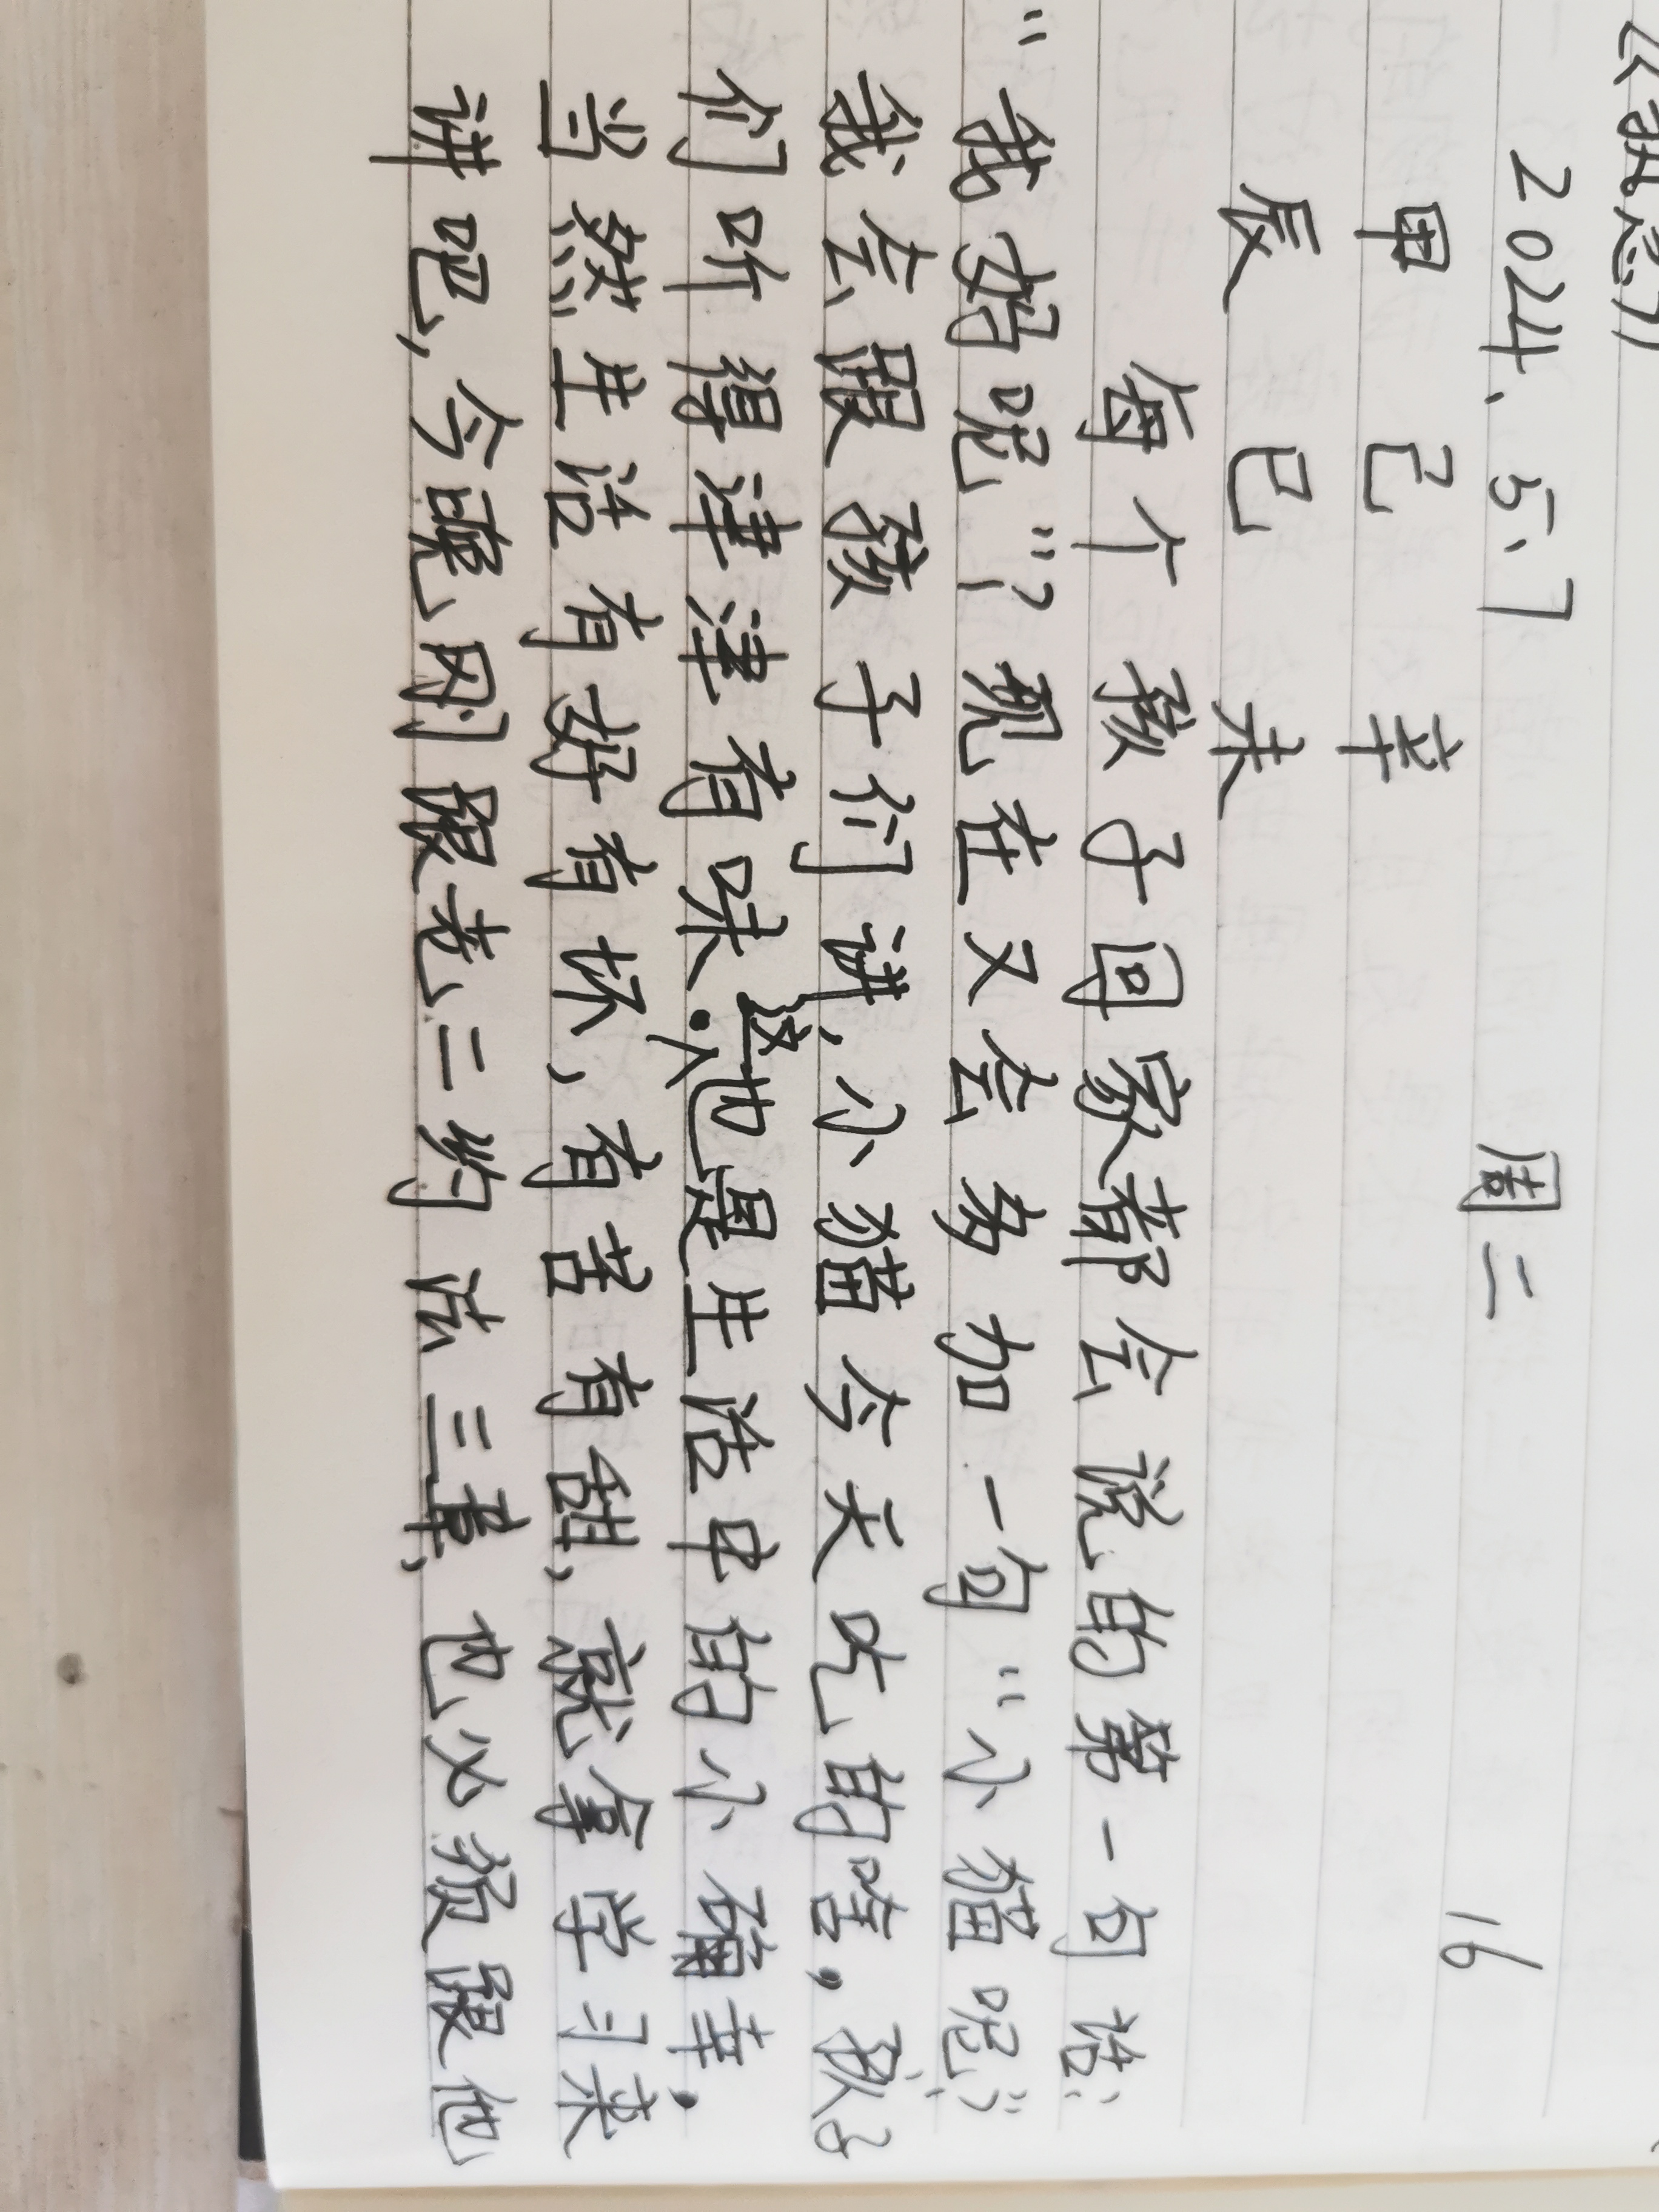 2024、5、7 周二 16
甲 己 辛
辰 巳 未
每个孩子回家都会说的第一句话:
“我妈呢”？现在又会多加一句“小猫呢”
我会跟孩子们讲,小猫今天吃的啥,孩子
们听得津津有味.这也是生活中的小确幸.
当然生活有好有坏,有苦有甜,就拿学习来
讲吧,今晚刚跟老二约法三章,也必须跟他